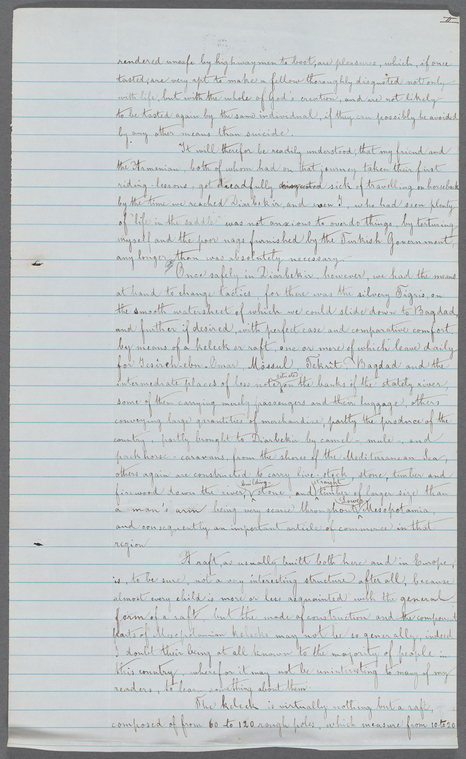 rendered unsafe by highwaymen to boot, are pleasures, which, if once
tasted, are very apt to make a fellow thoroughly disgusted not only
with life, but with the whole of God's creation, and are not likely
to be tasted again by the same individual, if they can possibly be avoided
by any other means than suicide.
It will therefor be readily understood, that my friend and
the Armenian, both of whom had on that journey taken their first
riding lessons, got dreadfully sick of travelling on horseback
by the time we reached Diarbekir, and even I, who had seen plenty
of "life in the saddle" was not anxious to overdo things, by torturing
myself and the poor nags furnished by the Turkish Government,
any longer than was absolutely necessary.
Once safely in Diarbekir however, we had the means
at hand to change tactics, for there was the silvery Tigris, on
the smooth watersheet of which we could slide down to Bagdad,
and further if desired, with perfect ease and comparative comfort
by means of a keleck or raft, one or more of which leave daily
for Jesireh-ebn-Omar, Mossul, Tekrit, Bagdad and the
intermediate places of less note, on the banks of the stately river,
some of them carrying merely passengers and their luggage, others
conveying large quantities of merchandise, partly the produce of the
country, partly brought to Diarbekir by camel-, mule-, and
packhorse-caravans, from the shores of the Mediterranean Sea,
others again are constructed to carry live-stock, stone, timber and
firewood down the river, building stone, and straight timber of larger size than
a man's arm being very scarce throughout Mesopotamia,
and consequently an important article of commerce in that
region.
A raft, as usually built both here and in Europe,
is, to be sure, not a very interesting structure after all, because
almost every child is more or less acquainted with the general
form of a raft, but the mode of construction and the component
parts of Mesopotamian kelecks may not be so generally, indeed
I doubt their being at all known to the majority of people in
this country, wherefor it may not be uninteresting to many of my
readers, to hear something about them.
The keleck is virtually nothing but a raft,
composed of from 60 to 120 rough poles, which measure from 10 to 20